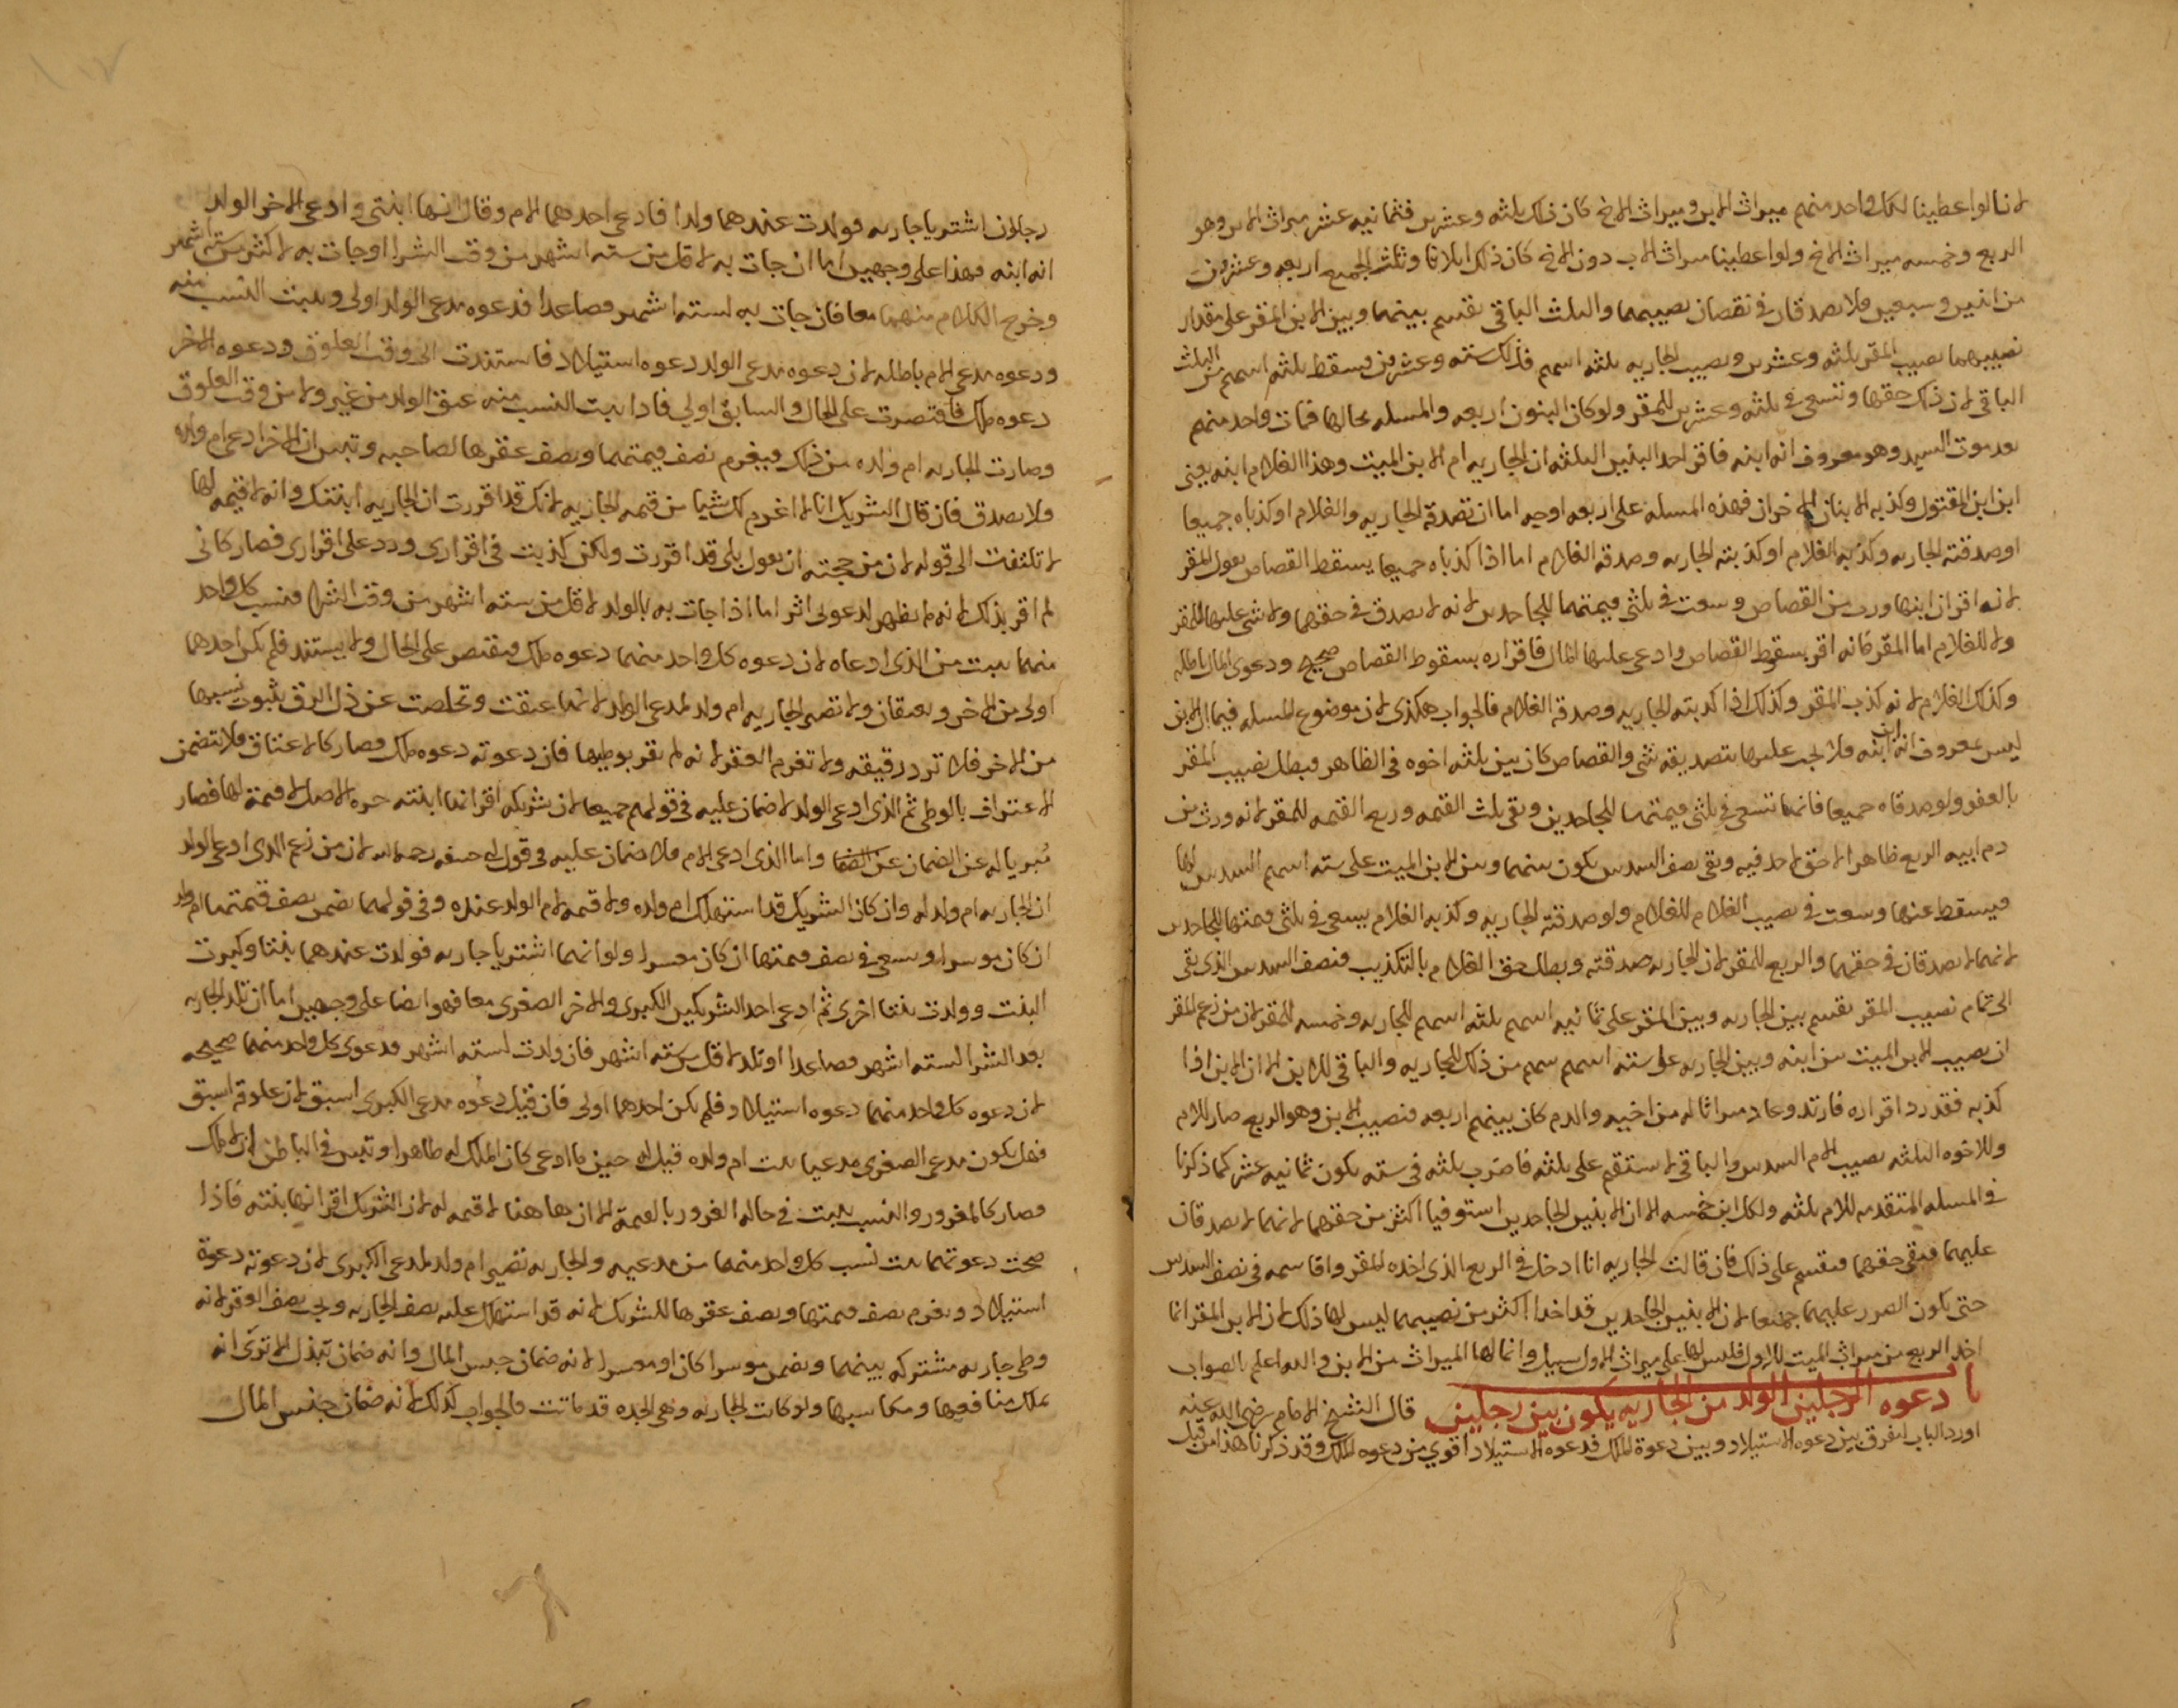 لانا لو اعطينا لكل واحد منهم ميراث الابن وميراث الاخ كان ذلك ثلثه وعشرين فثمانيه عشر ميراث الابن وهو
الربع وخمسه ميراث الاخ ولو اعطينا ميراث الاب دون الاخ كان ذلك اثلاثا وثلث الجميع اربعه وعشرون
من اثنين وسبعين فلا يصدقان في نقصان نصيبهما والثلث الباقي يقسم بينهما وبين الابن المقر على مقدار
نصيبهما نصيب المقر ثلثه وعشرين ونصيب الجاريه ثلثه اسهم فذلك سته وعشرين فيسقط ثلثه اسهم من الثلث
الباقي لان ذلك حقها وتسعى في ثلثه وعشرين للمقر ولو كان البنون اربعه والمسله بحالها فمات واحد منهم
بعد موت السيد وهو معروف انه ابنه فاقر احد البنين الثلثه ان الجاريه ام الابن الميت وهذا الغلام ابنه يعني
ابن ابن المقتول وكذبه الابنان الاخران فهذه المسله على اربعه اوجه اما ان تصدقه الجاريه والغلام او كذباه جميعا
او صدقته الجاريه وكذبه الغلام او كذبته الجاريه وصدقه الغلام اما اذا كذباه جميعا يسقط القصاص بقول المقر
لانه اقر ان ابنها ورث من القصاص وسعت في ثلثي قيمتهما للجاحدين لانه لا يصدق في حقهما ولا شي عليها للمقر
ولا للغلام اما المقر فانه اقر بسقوط القصاص وادعى عليها المال فاقراره بسقوط القصاص صحيح ودعوى المال باطله
وكذلك الغلام لانه كذب المقر وكذلك اذا كذبته الجاريه وصدقه الغلام فالجواب هكذى لان موضوع المسله فيما ان الابن
ليس بمعروف انه ابن ابنه فلا يجب عليها بتصديقه شي والقصاص كان بين ثلثه اخوه في الظاهر فبطل نصيب المقر
بالعفو ولو صدقاه جميعا فانهما تسعى في ثلثي قيمتهما للجاحدين وبقى ثلث القيمه وربع القيمه للمقر لانه ورث من
دم ابيه الربع ظاهرا لا حق لاحد فيه وبقى نصف السدس يكون بينهما وبين الابن الميت على سته اسهم السدس لها
فيسقط عنها وسعت في نصيب الغلام للغلام ولو صدقته الجاريه وكذبه الغلام يسعى في ثلثي قيمتها للجاحدين
لانهما لا يصدقان في حقهما والربع للمقر لان الجاريه صدقته وبطل حق الغلام بالتكذيب فنصف السدس الذي بقى
الى تمام نصيب المقر يقسم بين الجاريه وبين المقر على ثمانيه اسهم ثلثه اسهم للجاريه وخمسه للمقر لان من زعم المقر
ان نصيب الابن الميت بين ابنه وبين الجاريه على سته اسهم سهم من ذلك للجاريه والباقي للابن الا ان الابن اذا
كذبه فقد رد اقراره فارتد وعاد ميراثا له من اخيه والدم كان بينهم اربعه فنصيب الابن وهو الربع صار للام
وللاخوه الثلثه نصيب الام السدس والباقي لا يستقيم على ثلثه فاضرب ثلثه في سته يكون ثمانيه عشر كما ذكرنا
في المسله المتقدمه للام ثلثه ولكل ابن خمسه الا ان الابنين الجاحدين استوفيا اكثر من حقهما لانهما لا يصدقان
عليهما فبقى حقهما فيقسم على ذلك فان قالت الجاريه انا ادخل في الربع الذي اخذه المقر واقاسمه في نصف السدس
حتى يكون الضرر عليهما جميعا لان الابنين الجاحدين قد اخذا اكثر من نصيبهما ليس لها ذلك لان الابن المقر انما
اخذ الربع من ميراث الميت الاول فليس لها على ميراث الاول سبيل وانما لها الميراث من الابن والله اعلم بالصواب
باب دعوه الرجلين الولد من الجاريه يكون بين رجلين قال الشيخ الامام رضي الله عنه
اورد الباب لنفرق بين دعوه الاستيلاد وبين دعوة الملك فدعوه الاستيلاد اقوى من دعوه الملك وقد ذكرنا هذا من قبل
رجلان اشتريا جاريه فولدت عندهما ولدا فادعى احدهما الام وقال انها ابنتى وادعى الاخر الولد
انه ابنه فهذا على وجهين اما ان جات به لاقل من سته اشهر من وقت الشرا او جات به لاكثر من سته اشهر
وخرج الكلام منهما معا فان جات به لسته اشهر فصاعدا فدعوه مدعى الولد اولى ويثبت النسب منه
ودعوه مدعى الام باطله لان دعوه مدعى الولد دعوه استيلاد فاستندت الى وقت العلوق ودعوه الاخر
دعوه ملك فاقتصرت على الحال والسابق اولى فاذا ثبت النسب منه عتق الولد من غير ولا من وقت العلوق
وصارت الجاريه ام ولده من ذلك فيغرم نصف قيمتهما ونصف عقرها لصاحبه وتبين ان الاخر ادعى ام ولده
فلا يصدق فان قال الشريك انا لا اغرم لك شيا من قيمه الجاريه لانك قد اقررت ان الجاريه ابنتك وانه لا قيمه لها
لا تلتفت الى قوله لان من حجته ان يقول بلى قد اقررت ولكن كذبت في اقرارى ورد على اقرارى فصار كانى
لم اقر بذلك لانه لم يظهر لدعواى اثر اما اذا جات به بالولد لاقل من سته اشهر من وقت الشرا فنسب كل واحد
منهما يثبت من الذى ادعاه لان دعوه كل واحد منهما دعوه ملك فيقتصر على الحال ولا يستند فلم يكن احدهما
اولى من الاخر ويعتقان ولا تصير الجاريه ام ولد لمدعى الولد لانها عتقت وتخلصت عن ذل الرق بثبوت نسبها
من الاخر فلا ترد رقيقه ولا تغرم العقر لانه لم يقر بوطيها فان دعوته دعوه ملك فصار كالاعتاق فلا يتضمن
الاعتراف بالوطى ثم الذى ادعى الولد لا ضمان عليه في قولهم جميعا لان شريكه اقر انها ابنته حره الاصل لا قيمة لها فصار
مبريا له عن الضمان واما الذى ادعى الام فلا ضمان عليه في قول ابى حنيفه رحمه الله لان من زعم الذى ادعى الولد
ان الجاريه ام ولد له وان كان الشريك قد استهلك ام ولده ولا قيمه لام الولد عنده وفي قولهما يضمن نصف قيمتها ام ولد
ان كان موسرا وتسعى في نصف قيمتها ان كان معسرا ولو انهما اشتريا جاريه فولدت عندهما بنتا وكبرت
البنت وولدت بنتا اخرى ثم ادعى احد الشريكين الكبرى والاخر الصغرى معا فهو ايضا على وجهين اما ان تلد الجاريه
بعد الشرا لسته اشهر فصاعدا او تلد لاقل من سته اشهر فان ولدت لسته اشهر فدعوى كل واحد منهما صحيحه
لان دعوه كل واحد منهما دعوه استيلاد فلم يكن احدهما اولى فان قيل دعوه مدعى الكبرى اسبق لان علوقه اسبق
فهل يكون مدعى الصغرى مدعيا بنت ام ولده قيل له حين ما ادعى كان الملك له ظاهرا وتبين في الباطن ان لا ملك
فصار كالمغرور والنسب يثبت في حاله الغرور بالقيمة الا ان هاهنا لا قيمه له لان الشريك اقر انها بنته فاذا
صحت دعوتهما ثبت نسب كل واحد منهما من مدعيه والجاريه تصير ام ولد لمدعى الكبرى لان دعوته دعوة
استيلاد ويغرم نصف قيمتها ونصف عقرها للشريك لانه قد استهلك عليه نصف الجاريه ويجب نصف العقر لانه
وطى جاريه مشتركه بينهما ويضمن موسرا كان او معسرا لانه ضمان حبس المال وانه ضمان تبذل الا ترى انه
يملك منافعها ومكاسبها ولو كانت الجاريه وهى الجده قد ماتت فالجواب كذلك لانه ضمان جنس المال